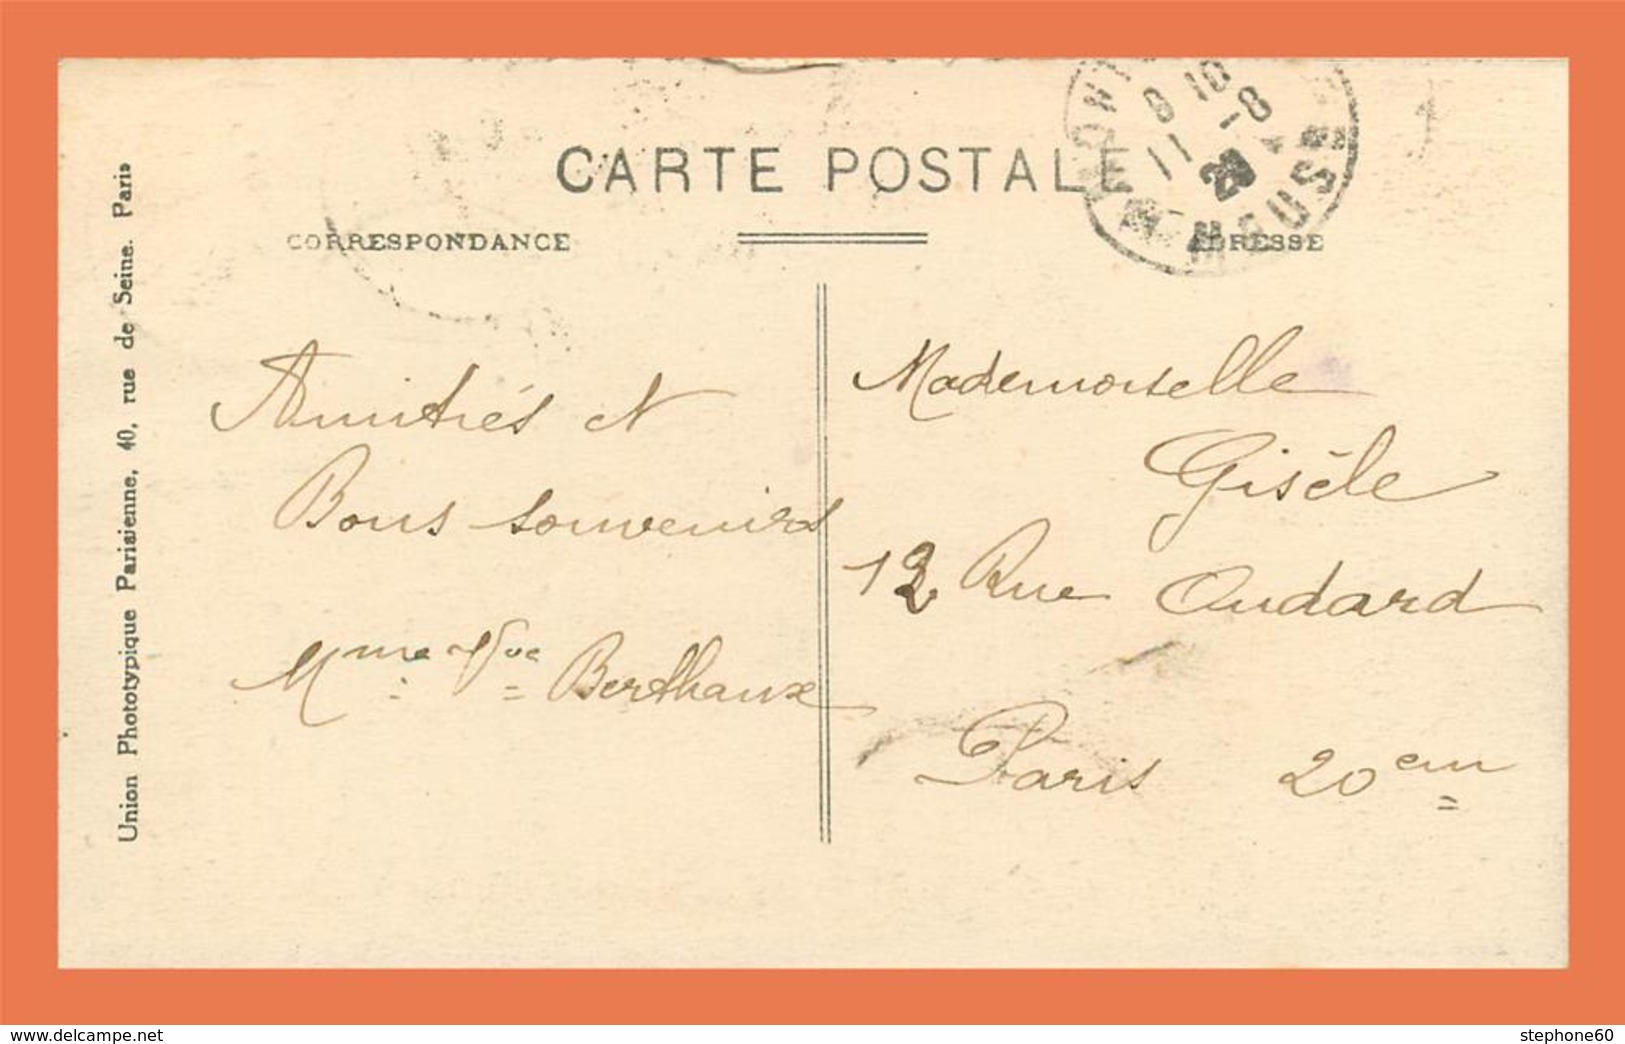 CARTE POSTALE
CORRESPONDANCE
ADRESSE
8 10
11 -8
MEUSE
Union Phototypique Parisienne, 40, rue de Seine. Paris
Amitiés et
Bons souvenirs
Mme Vve Berthaux
Mademoiselle
Gisèle
12 Rue Oudard
Paris 20em
www.delcampe.net
stephone60